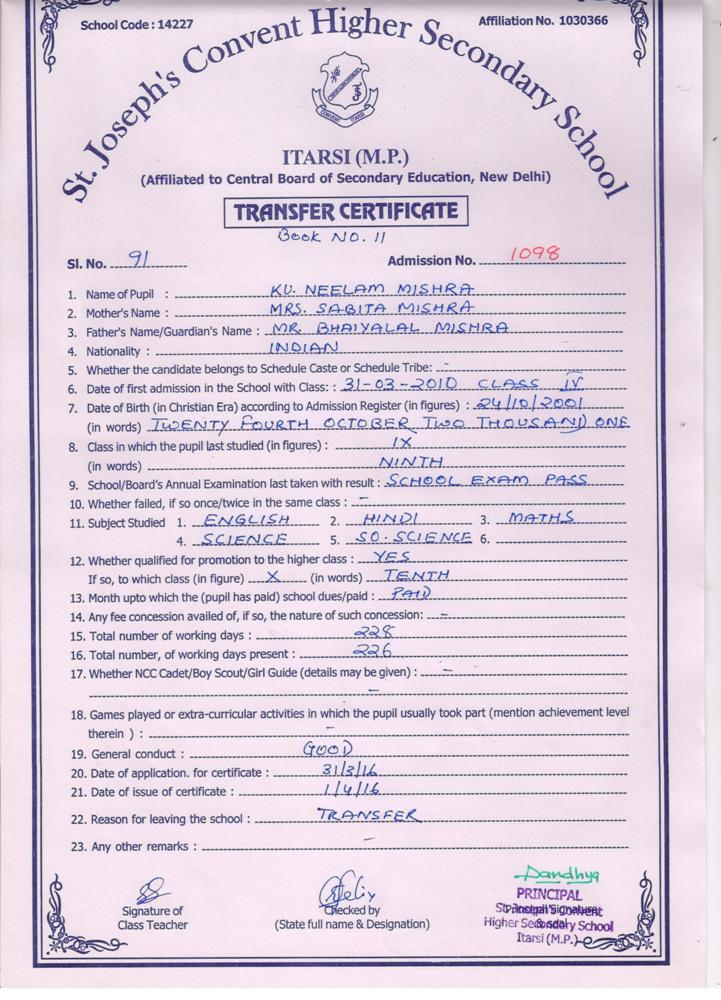 School Code : 14227
Affiliation No. 1030366
St. Joseph's Convent Higher Secondary School
ITARSI (M.P.)
(Affiliated to Central Board of Secondary Education, New Delhi)
TRANSFER CERTIFICATE
BOOK NO. 11
Sl. No. 91
Admission No. 1098
1. Name of Pupil : KU. NEELAM MISHRA
2. Mother's Name : MRS. SABITA MISHRA
3. Father's Name/Guardian's Name : MR. BHAIYALAL MISHRA
4. Nationality : INDIAN
5. Whether the candidate belongs to Schedule Caste or Schedule Tribe: -
6. Date of first admission in the School with Class: : 31-03-2010 CLASS IV
7. Date of Birth (in Christian Era) according to Admission Register (in figures) : 24/10/2001
(in words) TWENTY FOURTH OCTOBER TWO THOUSAND ONE
8. Class in which the pupil last studied (in figures) : IX
(in words) NINTH
9. School/Board's Annual Examination last taken with result : SCHOOL EXAM PASS
10. Whether failed, if so once/twice in the same class : -
11. Subject Studied 1. ENGLISH 2. HINDI 3. MATHS
4. SCIENCE 5. SO. SCIENCE 6.
12. Whether qualified for promotion to the higher class : YES
If so, to which class (in figure) X (in words) TENTH
13. Month upto which the (pupil has paid) school dues/paid : PAID
14. Any fee concession availed of, if so, the nature of such concession: -
15. Total number of working days : 228
16. Total number, of working days present : 226
17. Whether NCC Cadet/Boy Scout/Girl Guide (details may be given) : -
-
18. Games played or extra-curricular activities in which the pupil usually took part (mention achievement level
therein ) : -
19. General conduct : GOOD
20. Date of application. for certificate : 31/3/16
21. Date of issue of certificate : 1/4/16
22. Reason for leaving the school : TRANSFER
23. Any other remarks : -
Signature of
Class Teacher
Checked by
(State full name & Designation)
PRINCIPAL
St. Joseph's Convent
Higher Secondary School
Itarsi (M.P.)